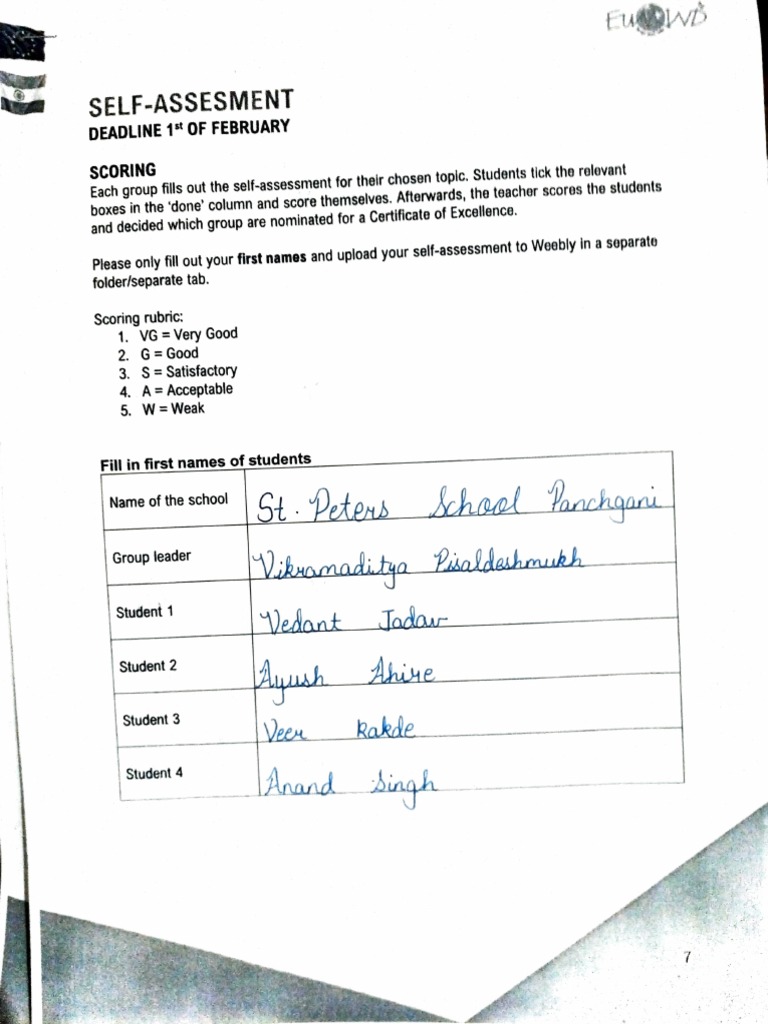 EUWWD
SELF-ASSESMENT
DEADLINE 1st OF FEBRUARY
SCORING
Each group fills out the self-assessment for their chosen topic. Students tick the relevant
boxes in the 'done' column and score themselves. Afterwards, the teacher scores the students
and decided which group are nominated for a Certificate of Excellence.
Please only fill out your first names and upload your self-assessment to Weebly in a separate
folder/separate tab.
Scoring rubric:
1. VG = Very Good
2. G = Good
3. S = Satisfactory
4. A = Acceptable
5. W = Weak
Fill in first names of students
Name of the school St. Peters School Panchgani
Group leader Vikramaditya Pisaldeshmukh
Student 1 Vedant Jadav
Student 2 Ayush Ahire
Student 3 Veer Kakde
Student 4 Anand Singh
7